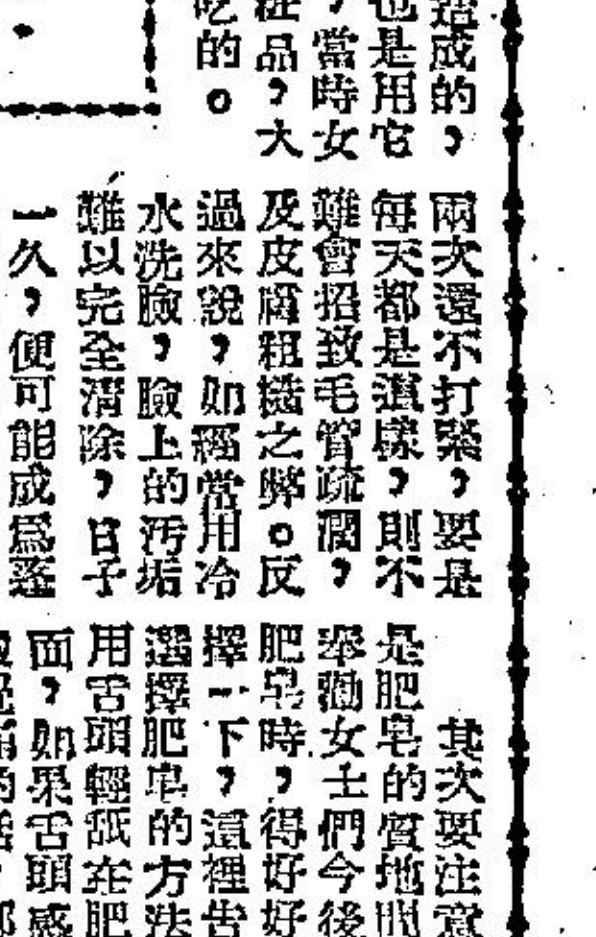 造成的，
也是用它
，當時女
粧品，大
吃的。
兩次還不打緊，要是
每天都是這樣，則不
難會招致毛管疏濶，
及皮膚粗糙之弊。反
過來說，如經常用冷
水洗臉，臉上的汚垢
難以完全清除，日子
一久，便可能成爲逐
其次要注意
是肥皂的質地問
奉勸女士們今後
肥皂時，得好好
擇一下，這裡告
選擇肥皂的方法
用舌頭輕舐在肥
面，如果舌頭感